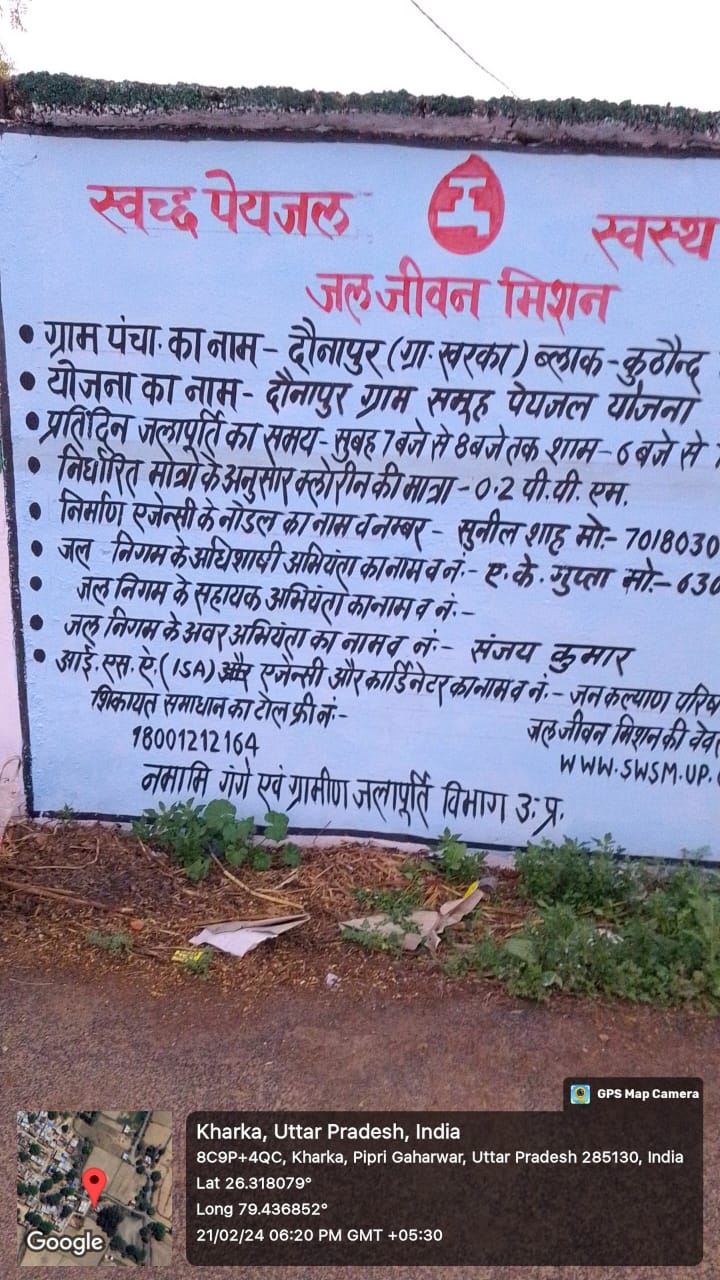 स्वच्छ पेयजल स्वस्थ
जल जीवन मिशन
• ग्राम पंचा. का नाम - दौनापुर (ग्रा. खरका) ब्लाक - कुठौन्द
• योजना का नाम - दौनापुर ग्राम समूह पेयजल योजना
• प्रतिदिन जलापूर्ति का समय - सुबह 7 बजे से 8 बजे तक शाम - 6 बजे से
• निर्धारित मात्रा के अनुसार क्लोरीन की मात्रा - 0.2 पी.पी. एम.
• निर्माण एजेन्सी के नोडल का नाम व नम्बर - सुनील शाह मो.- 7018030
• जल निगम के अधिशाषी अभियंता का नाम व नं:- ए.के. गुप्ता मो:- 630
• जल निगम के सहायक अभियंता का नाम व नं:-
• जल निगम के अवर अभियंता का नाम व नं:- संजय कुमार
• आई. एस. ऐ. (ISA) और एजेन्सी और कार्डिनेटर का नाम व नं:- जन कल्याण परिष
शिकायत समाधान का टोल फ्री नं:-
18001212164
जल जीवन मिशन की वेव
WWW.SWSM.UP.
नमामि गंगे एवं ग्रामीण जलापूर्ति विभाग उ.प्र.
GPS Map Camera
Kharka, Uttar Pradesh, India
8C9P+4QC, Kharka, Pipri Gaharwar, Uttar Pradesh 285130, India
Lat 26.318079°
Long 79.436852°
21/02/24 06:20 PM GMT +05:30
Google